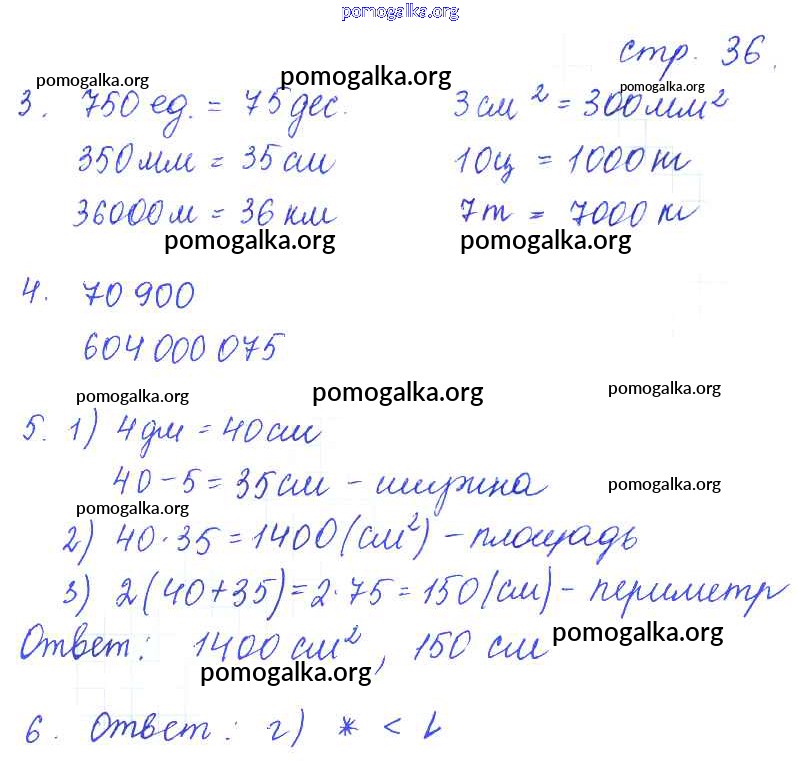 pomogalka.org
стр. 36.
pomogalka.org pomogalka.org pomogalka.org
3. 750 ед. = 75 дес. 3 см² = 300 мм²
350 мм = 35 см 10 ц = 1000 кг
36000 м = 36 км 7 т = 7000 кг
pomogalka.org pomogalka.org
4. 70 900
604 000 075
pomogalka.org pomogalka.org pomogalka.org
5. 1) 4 дм = 40 см
40 - 5 = 35 см - ширина
pomogalka.org pomogalka.org
2) 40 · 35 = 1400 (см²) - площадь
3) 2 (40 + 35) = 2 · 75 = 150 (см) - периметр
Ответ: 1400 см², 150 см
pomogalka.org pomogalka.org
6. Ответ: г) * <